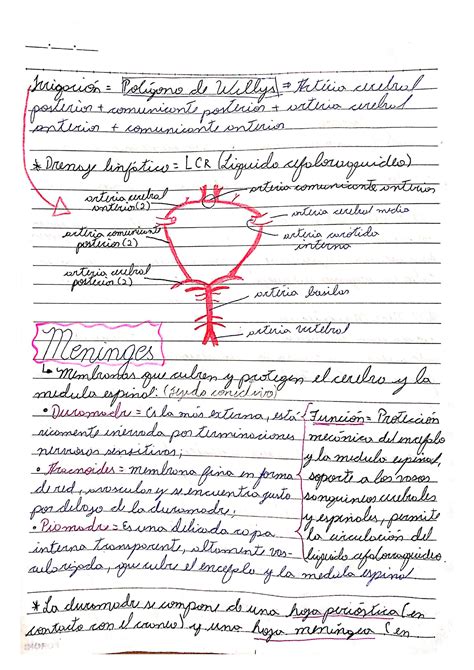 Irrigación = Polígono de Willys => Artéria cerebral
posterior + comunicante posterior + arteria cerebral
anterior + comunicante anterior
* Drenaje linfático = LCR (Líquido cefaloraquideo)
arteria cerebral anterior (2)
arteria comunicante anterior
arteria cerebral media
arteria comunicante posterior (2)
arteria carotida interna
arteria cerebral posterior (2)
arteria basilar
arteria vertebral
Meninges
↳ Membranas que cubren y protegen el cerebro y la
medula espinal: (tejido conectivo)
• Duramadre = Es la más externa, está
ricamente inervada por terminaciones
nerviosas sensitivas;
• Aracnoides = membrana fina en forma
de red, avascular y se encuentra justo
por debajo de la duramadre;
• Piamadre = Es una delicada capa
interna transparente, altamente vas-
cularizada, que cubre el encefalo y la medula espinal
Función = Protección
mecánica del encefalo
y la medula espinal,
soporte a los vasos
sanguineos cerebrales
y espinales, permite
la circulación del
liquido cefaloraquideo.
* La duramadre se compone de una hoja perióstica (en
contacto con el craneo) y una hoja meníngea (en